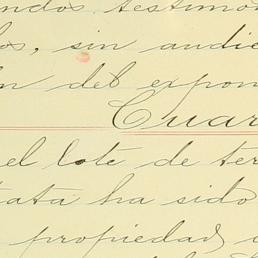 ndos testimon
os, sin audie
ón del expon
Cuar
el lote de ter
tata ha sido
propiedad